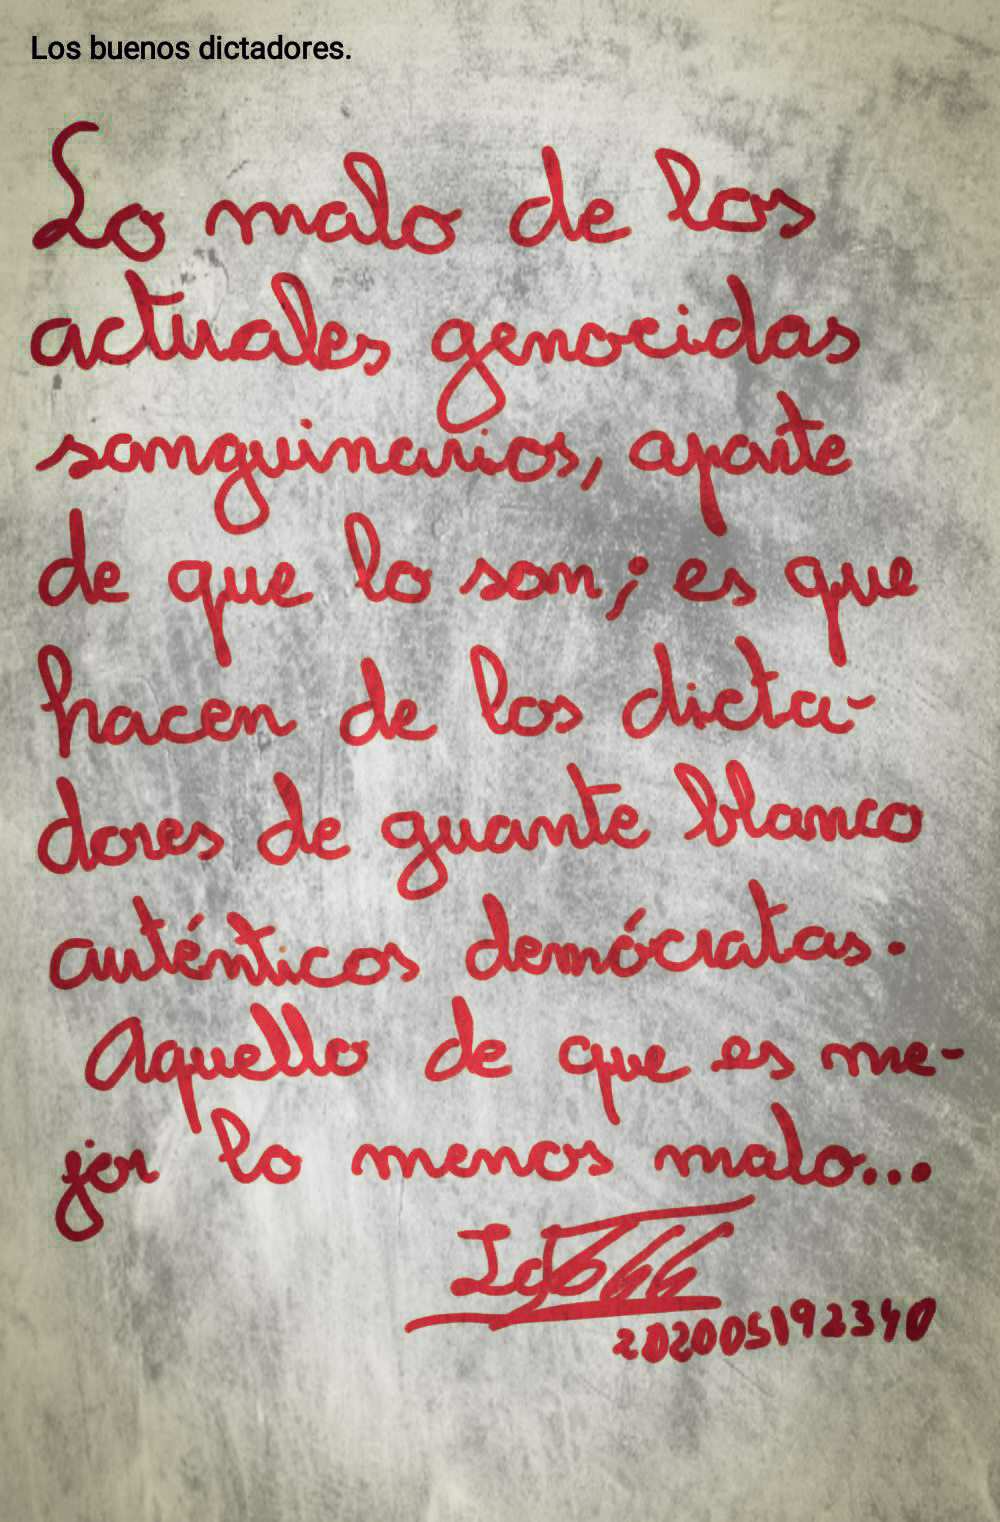 Los buenos dictadores.
Lo malo de los
actuales genocidas
sanguinarios, aparte
de que lo son; es que
hacen de los dicta-
dores de guante blanco
auténticos demócratas.
Aquello de que es me-
jor lo menos malo...
202005192340